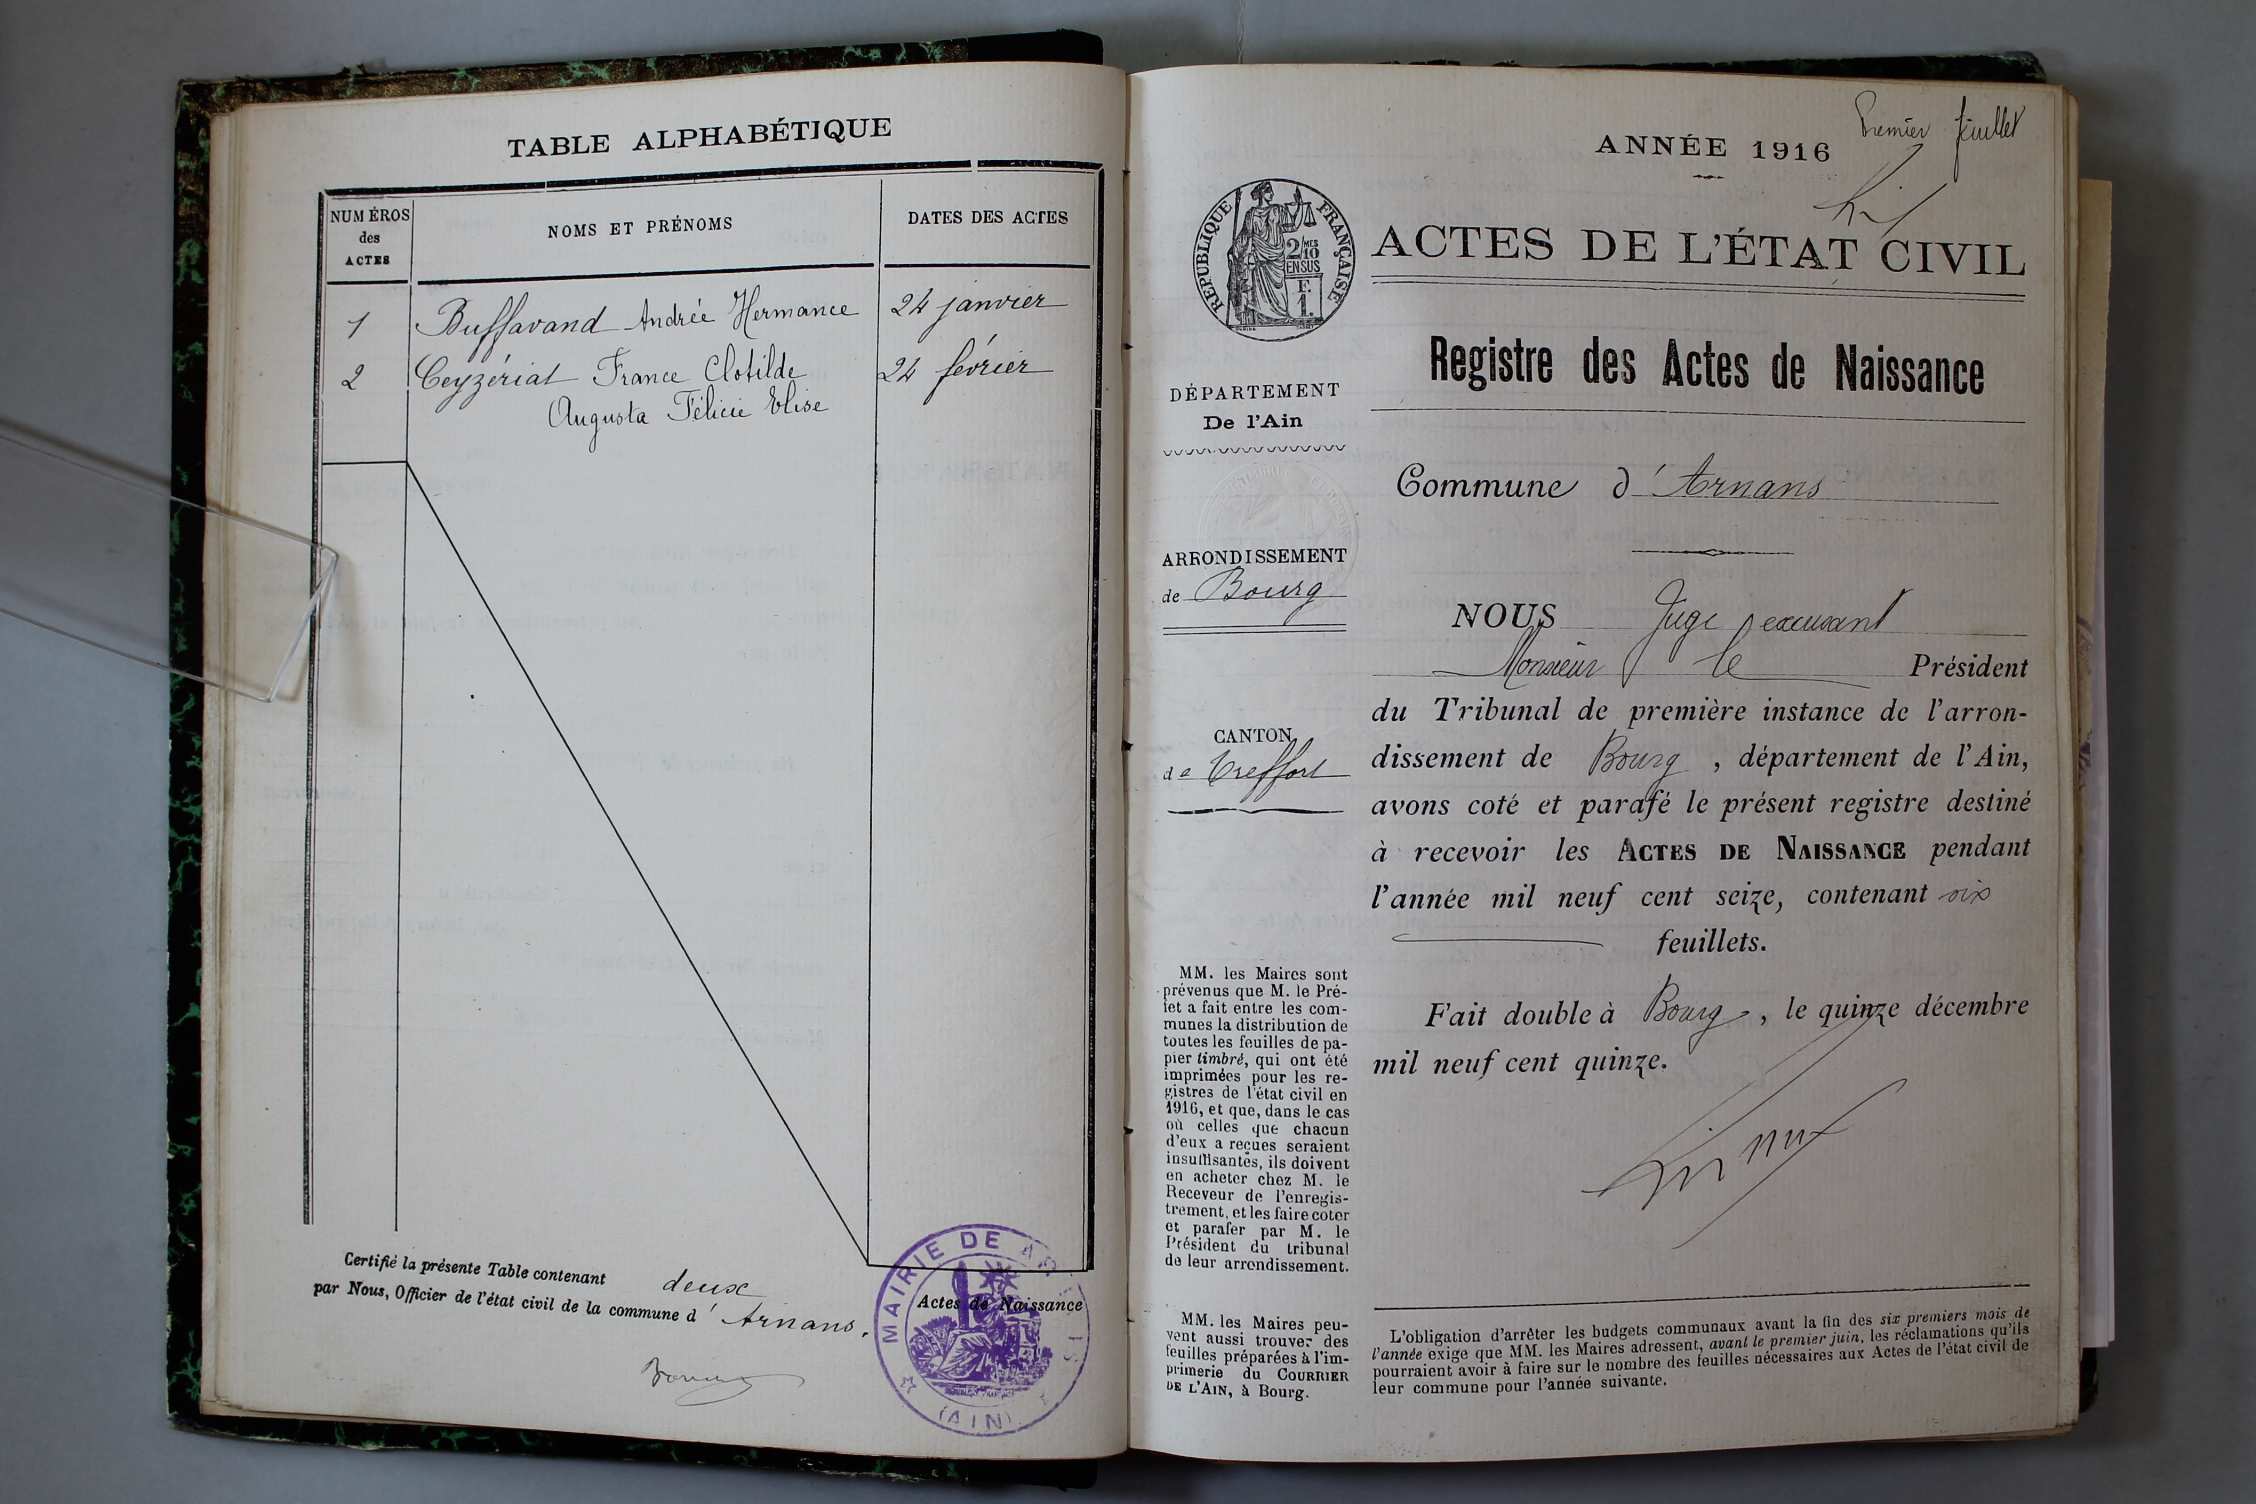 TABLE ALPHABÉTIQUE
NUMÉROS des ACTES
NOMS ET PRÉNOMS
DATES DES ACTES
1 Buffavand Andrée Hermance 24 janvier
2 Ceyzériat France Clotilde 24 février
Augusta Félicie Elise
Certifié la présente Table contenant deux Actes de Naissance
par Nous, Officier de l'état civil de la commune d'Arnans.
MAIRIE DE ARNANS
(AIN)
Premier feuillet
ANNÉE 1916
RÉPUBLIQUE FRANÇAISE
2/10 MES
EN SUS
F.
1.
ACTES DE L'ÉTAT CIVIL
Registre des Actes de Naissance
DÉPARTEMENT
De l'Ain
Commune d'Arnans
ARRONDISSEMENT
de Bourg
CANTON
de Treffort
NOUS Juge excusant
Monsieur le Président
du Tribunal de première instance de l'arron-
dissement de Bourg, département de l'Ain,
avons coté et parafé le présent registre destiné
à recevoir les ACTES DE NAISSANCE pendant
l'année mil neuf cent seize, contenant six
feuillets.
Fait double à Bourg, le quinze décembre
mil neuf cent quinze.
MM. les Maires sont
prévenus que M. le Pré-
fet a fait entre les com-
munes la distribution de
toutes les feuilles de pa-
pier timbré, qui ont été
imprimées pour les re-
gistres de l'état civil en
1916, et que, dans le cas
où celles que chacun
d'eux a reçues seraient
insuffisantes, ils doivent
en acheter chez M. le
Receveur de l'enregis-
trement, et les faire coter
et parafer par M. le
Président du tribunal
de leur arrondissement.
MM. les Maires peu-
vent aussi trouver des
feuilles préparées à l'im-
primerie du COURRIER
DE L'AIN, à Bourg.
L'obligation d'arrêter les budgets communaux avant la fin des six premiers mois de
l'année exige que MM. les Maires adressent, avant le premier juin, les réclamations qu'ils
pourraient avoir à faire sur le nombre des feuilles nécessaires aux Actes de l'état civil de
leur commune pour l'année suivante.